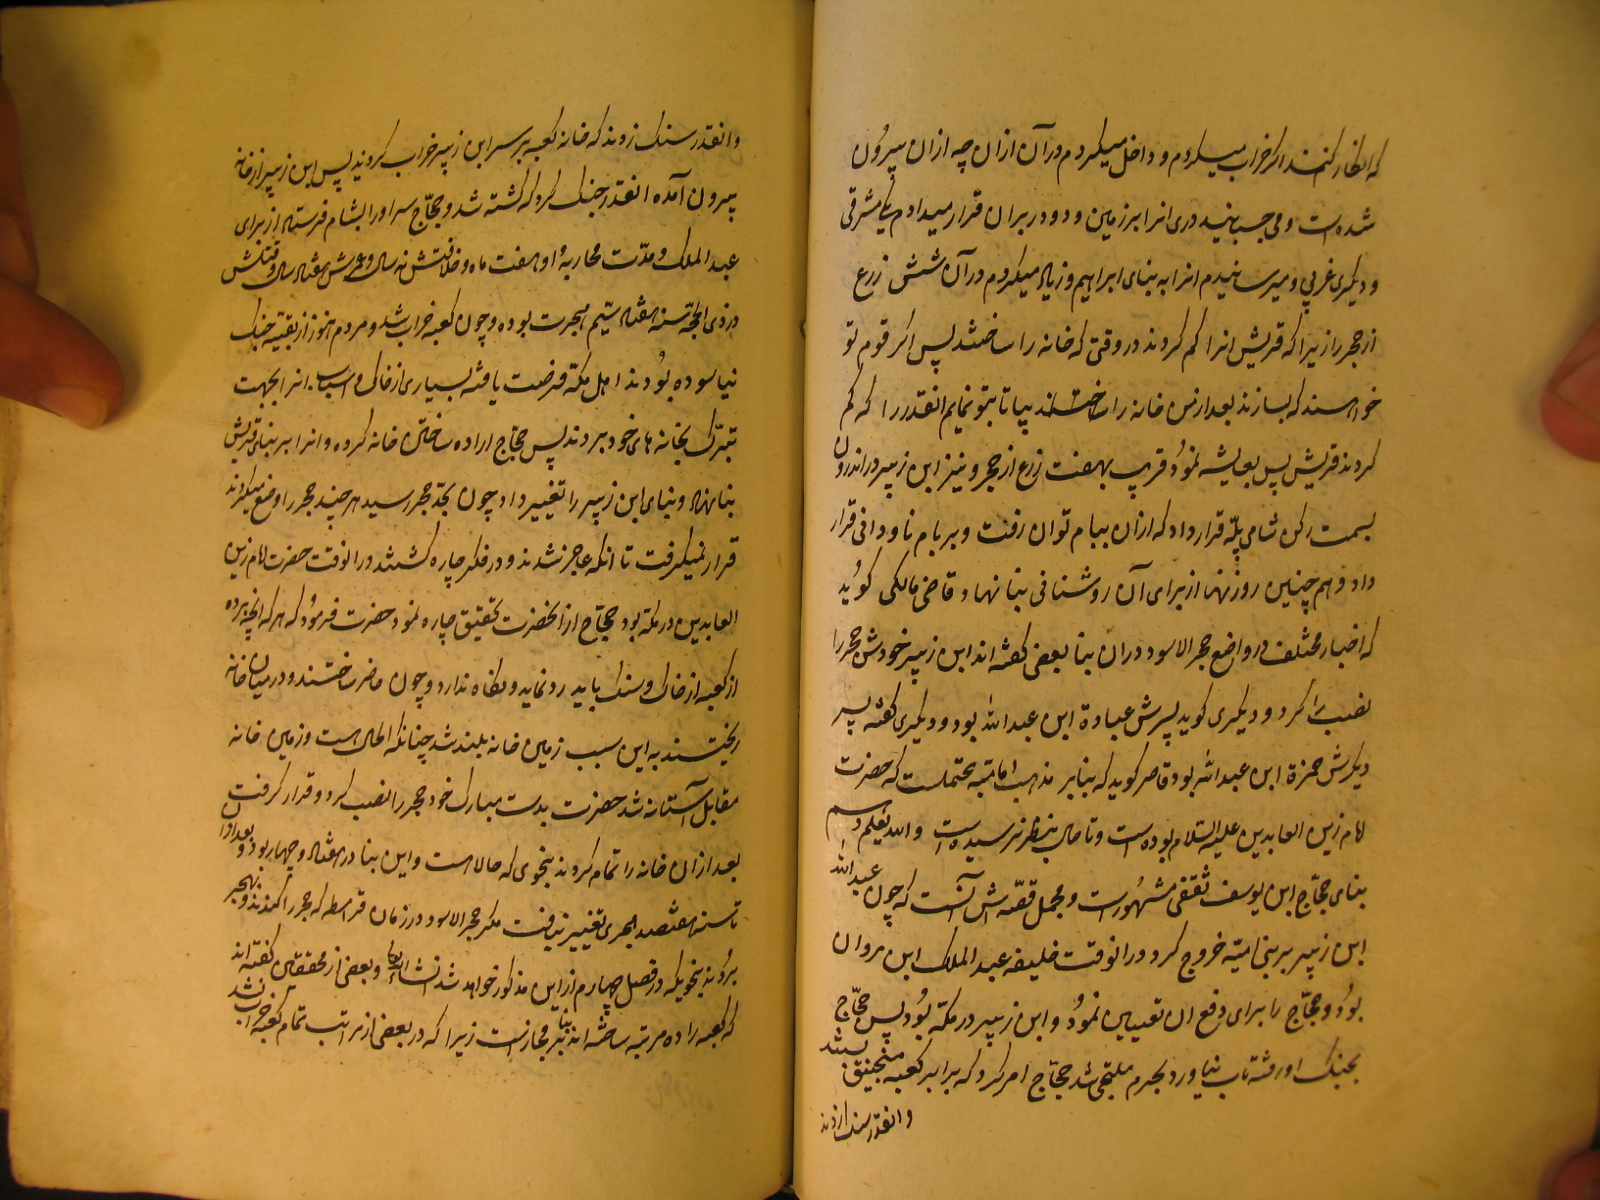 که انکار کنند از خراب میکردم و داخل میکردم در آن از ان چه از ان بیرون
شده است و می چسبانیدم دری انرا بر زمین و دو در بران قرار میدادم یکی مشرقی
و دیگری غربی و میرسانیدم انرا به بنای ابراهیم و زیاد میکردم در آن شش زرع
از حجر را زیرا که قریش انرا کم کردند در وقتی که خانه را ساختند پس اکر قوم تو
خواهند که بسازند بعد از من خانه را بیا تا بتو نمایم انقدر را که کم
کردند قریش پس بعایشه نمود قریب بهفت زرع از حجر و نیز ابن زبیر در اندرون
بسمت رکن شامی پلّه قرار داد که از ان ببام توان رفت و بر بام ناودانی قرار
داد و هم چنین روزنها از برای آن روشنائی بنا نهاد و قاضی مالکی کوید
که اخبار مختلف در واضع حجر الاسود در ان بنا بعضی کفته اند ابن زبیر خودش حجر را
نصب کرد و دیکری کوید پسرش عبادة ابن عبد الله بود و دیکری کفته پسر
دیکرش حمزة ابن عبد الله بود قاصر کوید که بنا بر مذهب امامیّه محتملست که حضرت
امام زین العابدین علیه السّلام بوده است و تا حال بنظر نرسیده است و الله یعلم دهم
بنای حجّاج ابن یوسف ثقفی مشهورست و مجمل قصّه اش آنست که چون عبد الله
ابن زبیر بر بنی امیّه خروج کرد در انوقت خلیفه عبد الملک ابن مروان
بود و حجّاج را برای دفع ان تعیین نمود و ابن زبیر در مکّه بود پس حجّاج
بجنک او رفته تاب نیاورد بحرم ملتجی شد حجّاج امر کرد که برابر کعبه منجنیق بستند
و انقدر سنک زدند
و انقدر سنک زدند که خانه کعبه بر سر ابن زبیر خراب کردند پس ابن زبیر از خانه
بیرون آمده انقدر جنک کرد که کشته شد و حجّاج سر او را بشام فرستاد از برای
عبد الملک و مدّت محاربهٔ او هفت ماه و خلافتش نه سال و عمرش هفتاد سال و قتلش
در ذی الحجّه سنه هفتاد سیّم هجرت بوده و چون کعبه خراب شد و مردم هنوز از بقیّه جنک
نیاسوده بودند اهل مکّه فرصت یافته بسیاری از خاک و اسباب انرا بجهت
تبرّک بخانه های خود بردند پس حجّاج اراده ساختن خانه کرده و انرا بر بنای قریش
بنا نهاد و بنای ابن زبیر را تغییر داد چون بحدّ حجر رسید هر چند حجر را وضع میکردند
قرار نمیکرفت تا انکه عاجز شدند و در فکر چاره کشتند در انوقت حضرت امام زین
العابدین در مکّه بود حجّاج از انحضرت تحقیق چاره نمود حضرت فرمود که هر که انچه برده
از کعبه از خاک و سنک باید رد نماید و نکاه ندارد و چون حاضر ساختند و در میان خانه
ریختند به این سبب زمین خانه بلند شد چنانکه الحال هست و زمین خانه
مقابل آستانه شد حضرت بدست مبارک خود حجر را نصب کرد و قرار کرفت
بعد از ان خانه را تمام کردند بنحوی که حالا هست و این بنا در هفتاد و چهار بود و بعد از ان
تا سنه هفتصد هجری تغییر نیافت مکر حجر الاسود در زمان قرامطه که حجر را کندند و بهجر
بردند بنحویکه در فصل چهارم از این مذکور خواهد شد انشاء الله تعالی و بعضی از محققین کفته اند
که کعبه را ده مرتبه ساخته اند بنا بر مجازست زیرا که در بعضی از مراتب تمام کعبه خراب نشد